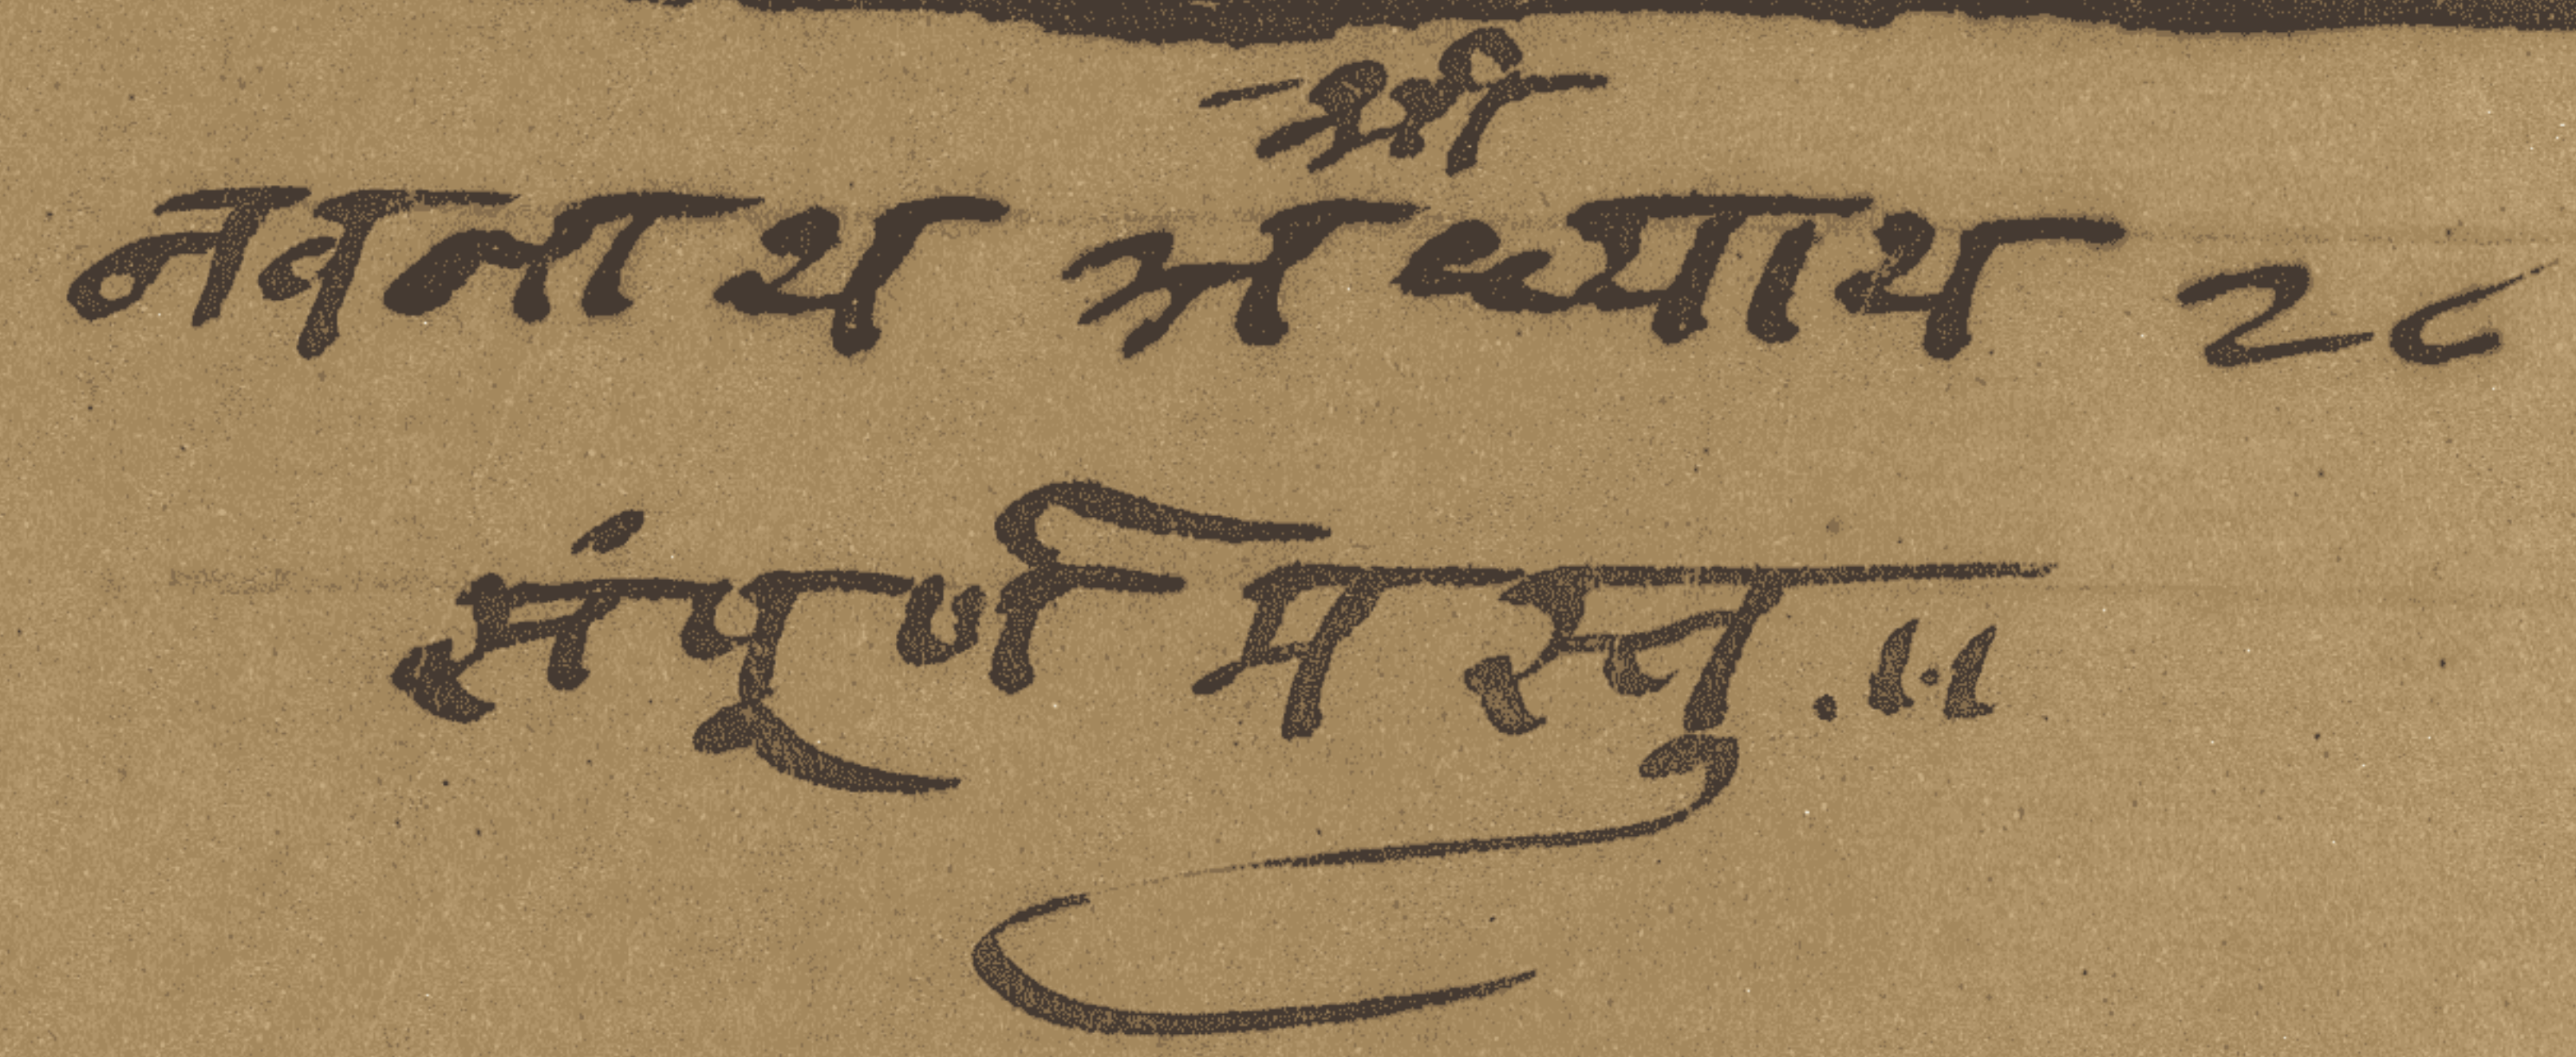 श्री
नवनाथ अध्याय २८
संपूर्ण मस्तु .॥